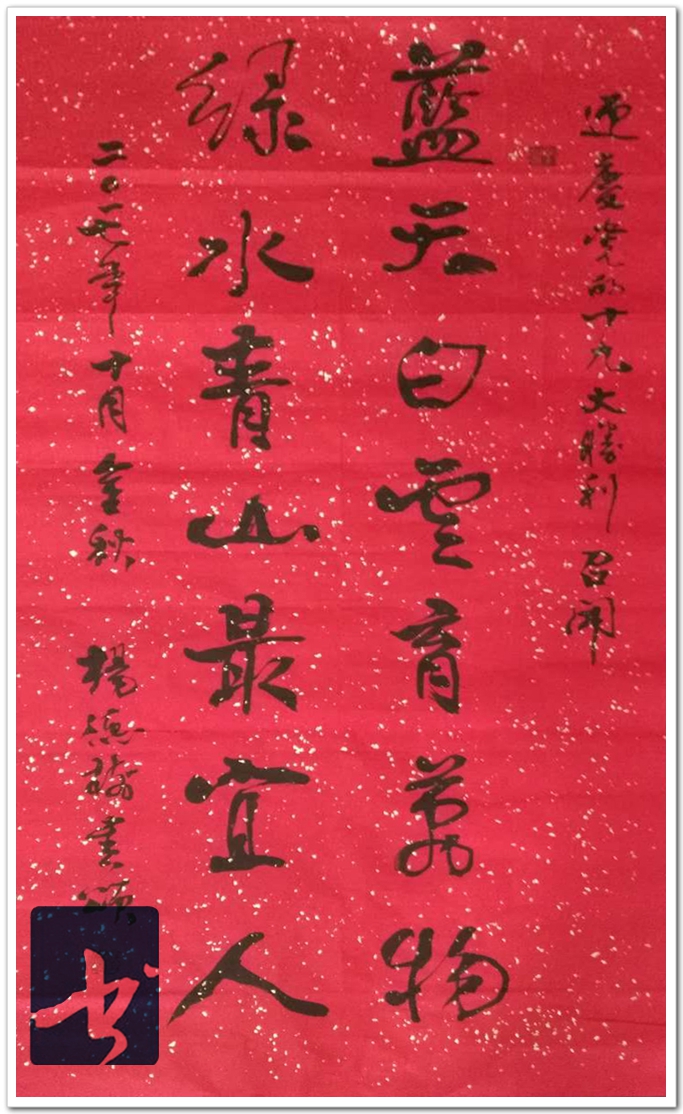 迎慶党的十九大勝利召開
藍天白雲育萬物
绿水青山最宜人
二〇一七年十月金秋 楊德書頌
书